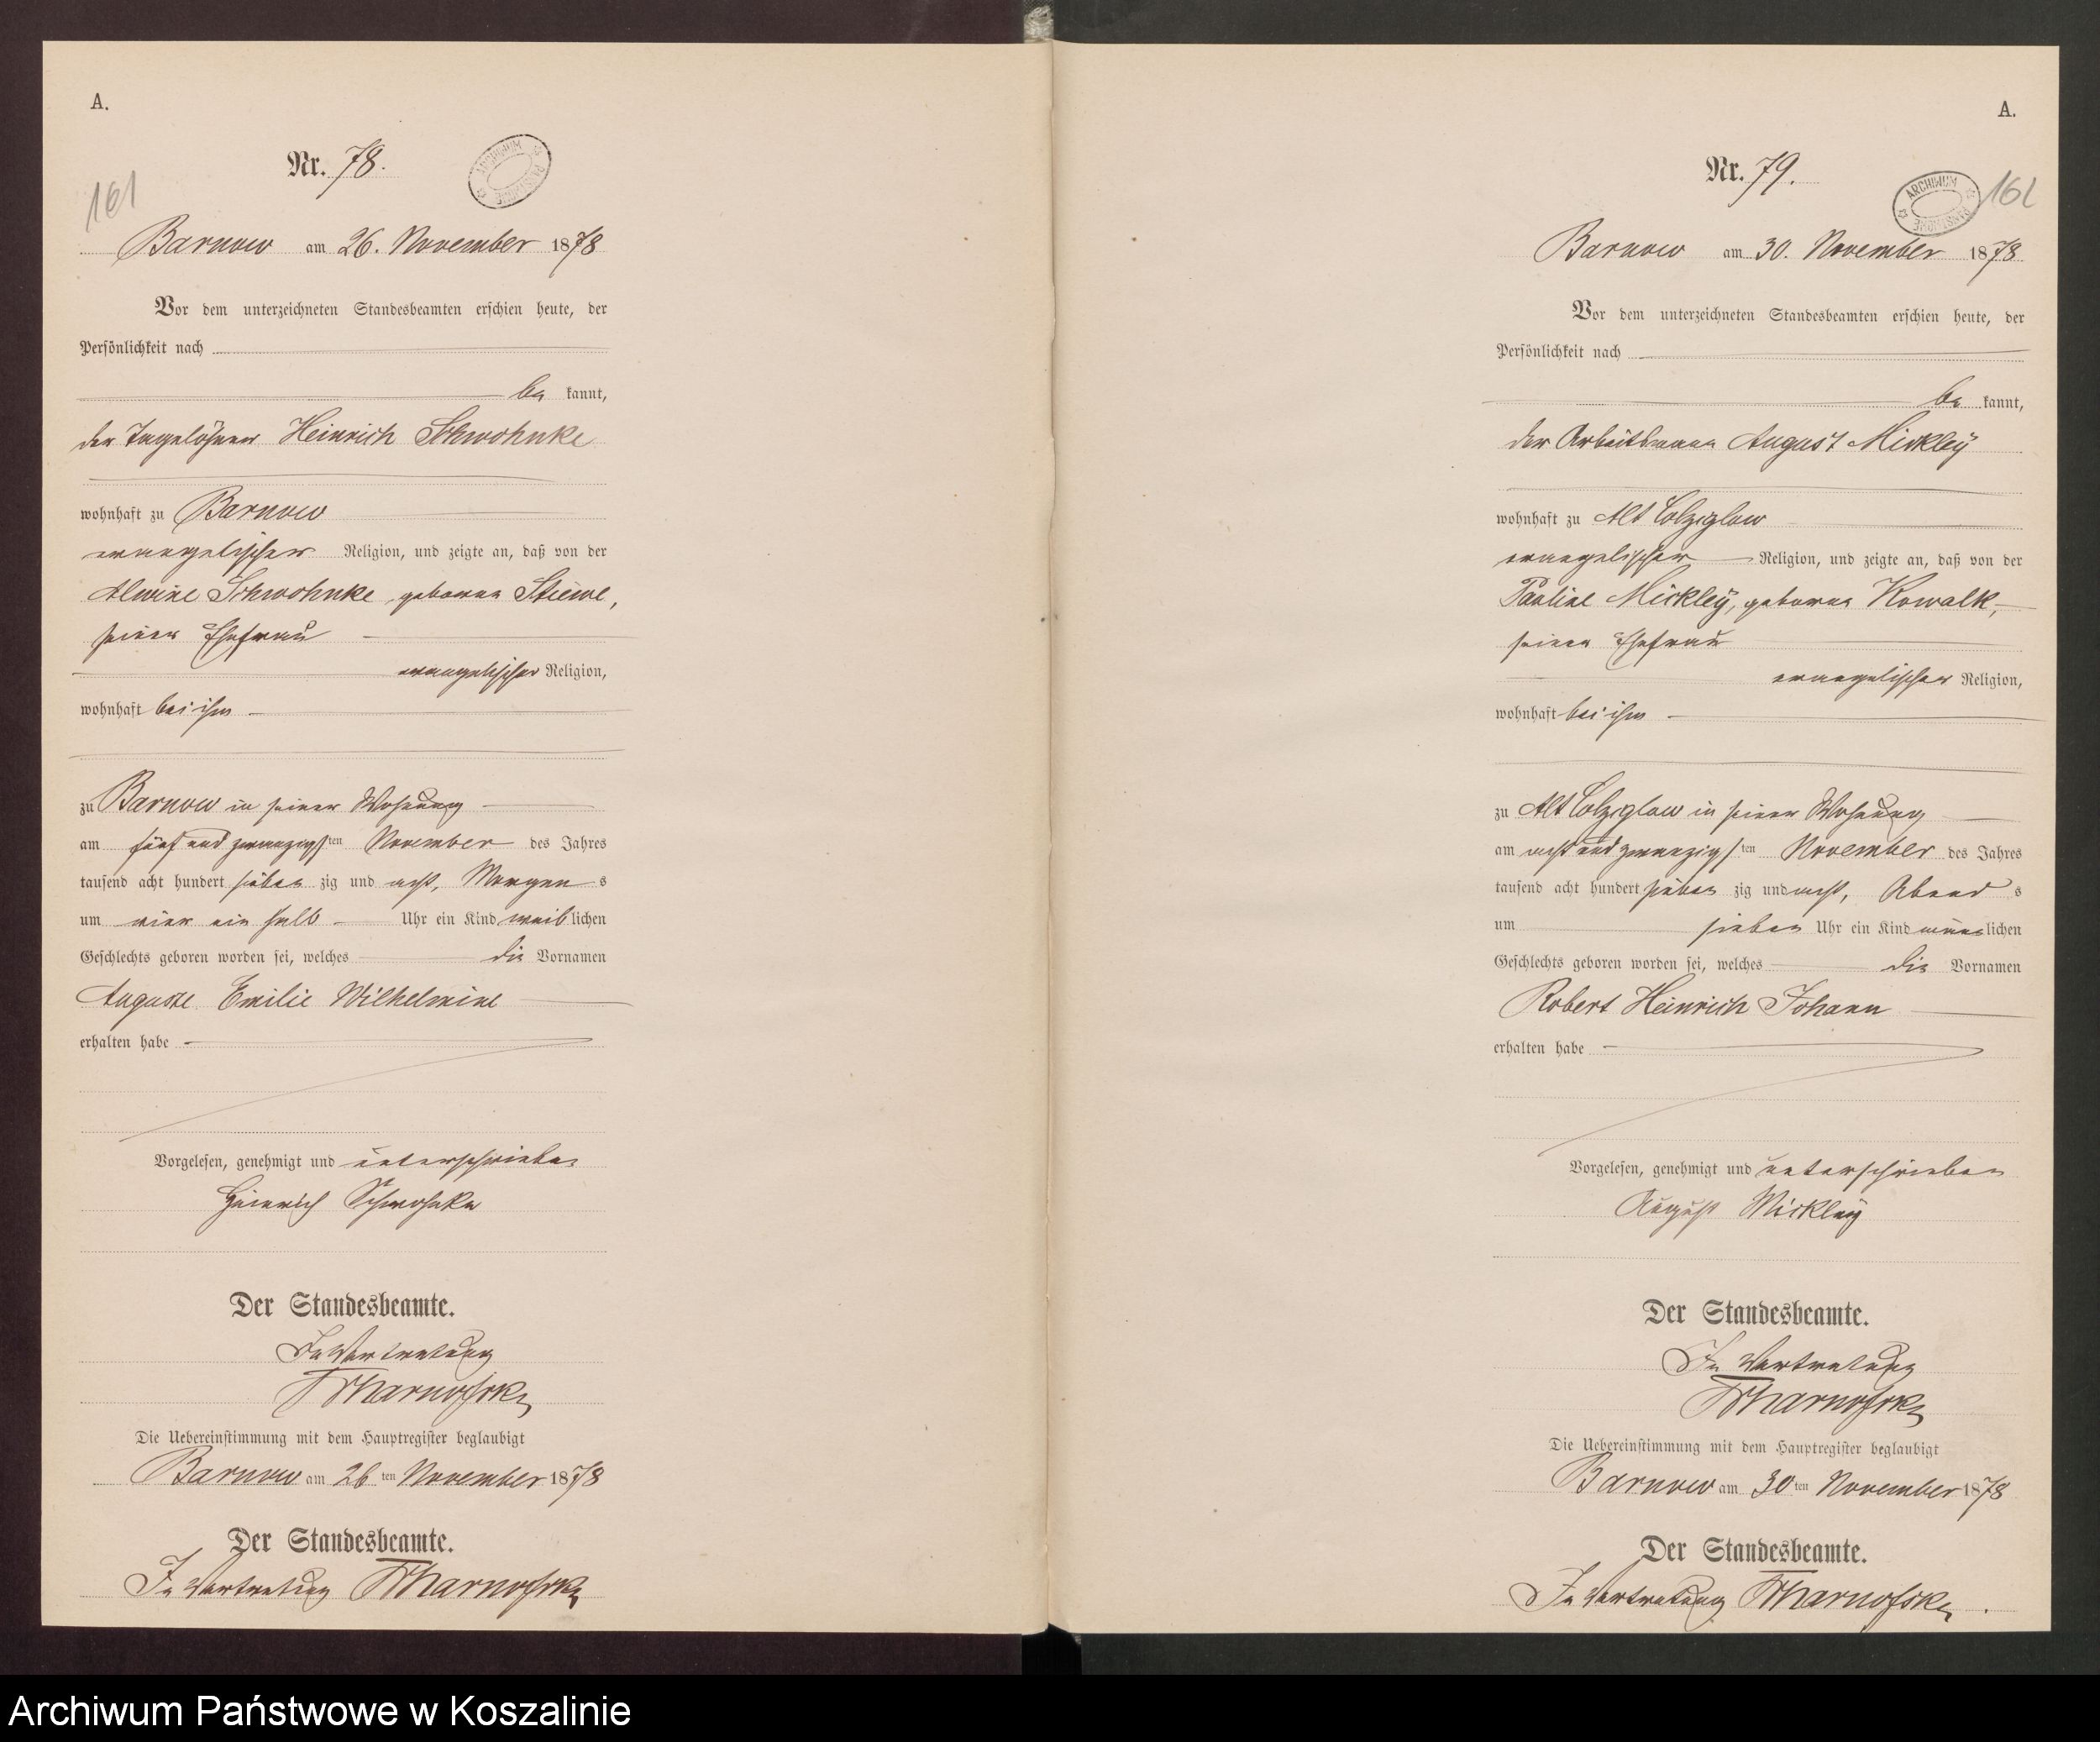 A.
Nr. 78.
161
ARCHIWUM PAŃSTWOWE
Barnow am 26. November 1878
Vor dem unterzeichneten Standesbeamten erschien heute, der
Persönlichkeit nach
be kannt,
der Tagelöhner Heinrich Schwohnke
wohnhaft zu Barnow
evangelischer Religion, und zeigte an, daß von der
Alwine Schwohnke, geborne Stüwe,
seiner Ehefrau
evangelischer Religion,
wohnhaft bei ihm
zu Barnow in seiner Wohnung
am fünf und zwanzigsten November des Jahres
tausend acht hundert sieben zig und acht, Morgens
um vier ein halb Uhr ein Kind weiblichen
Geschlechts geboren worden sei, welches die Vornamen
Auguste Emilie Wilhelmine
erhalten habe
Vorgelesen, genehmigt und unterschrieben
Heinrich Schwohnke
Der Standesbeamte.
In Vertretung
Die Uebereinstimmung mit dem Hauptregister beglaubigt
Barnow am 26ten November 1878
Der Standesbeamte.
In Vertretung
A.
Nr. 79.
ARCHIWUM PAŃSTWOWE
162
Barnow am 30. November 1878
Vor dem unterzeichneten Standesbeamten erschien heute, der
Persönlichkeit nach
be kannt,
der Arbeitsmann August Mickley
wohnhaft zu Alt Colziglow
evangelischer Religion, und zeigte an, daß von der
Pauline Mickley, geborne Kowalk,
seiner Ehefrau
evangelischer Religion,
wohnhaft bei ihm
zu Alt Colziglow in seiner Wohnung
am acht und zwanzigsten November des Jahres
tausend acht hundert sieben zig und acht, Abends
um sieben Uhr ein Kind männlichen
Geschlechts geboren worden sei, welches die Vornamen
Robert Heinrich Johann
erhalten habe
Vorgelesen, genehmigt und unterschrieben
August Mickley
Der Standesbeamte.
In Vertretung
Die Uebereinstimmung mit dem Hauptregister beglaubigt
Barnow am 30ten November 1878
Der Standesbeamte.
In Vertretung
Archiwum Państwowe w Koszalinie